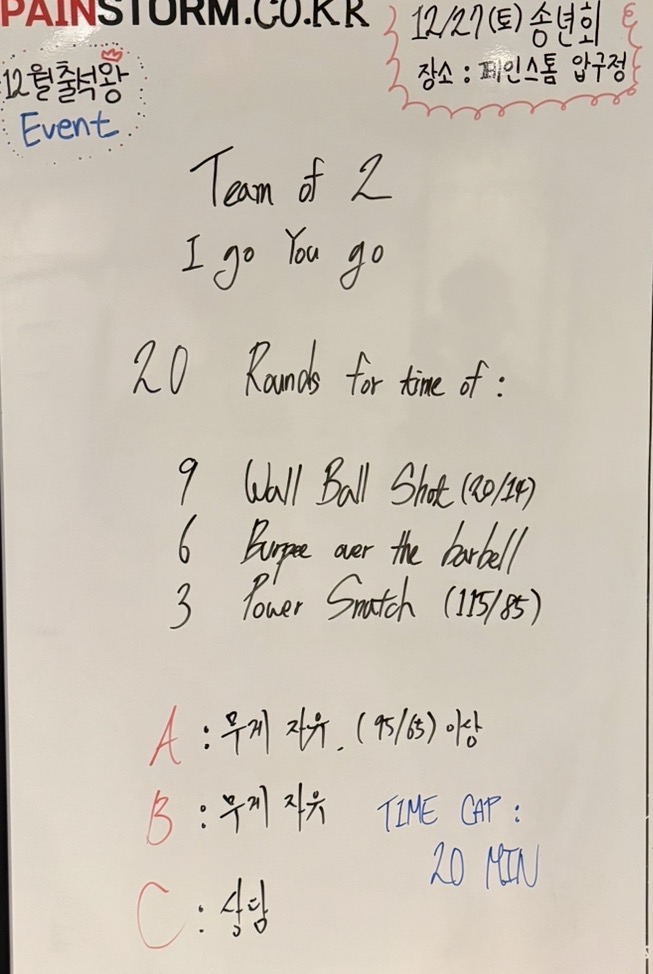 PAINSTORM.CO.KR
12/27(토) 송년회
장소 : 페인스톰 압구정
12월 출석왕
Event
Team of 2
I go You go
20 Rounds for time of :
9 Wall Ball Shot (20/14)
6 Burpee over the barbell
3 Power Snatch (115/85)
A : 무게 자유. (95/65) 이상
B : 무게 자유
TIME CAP :
20 MIN
C : 상담